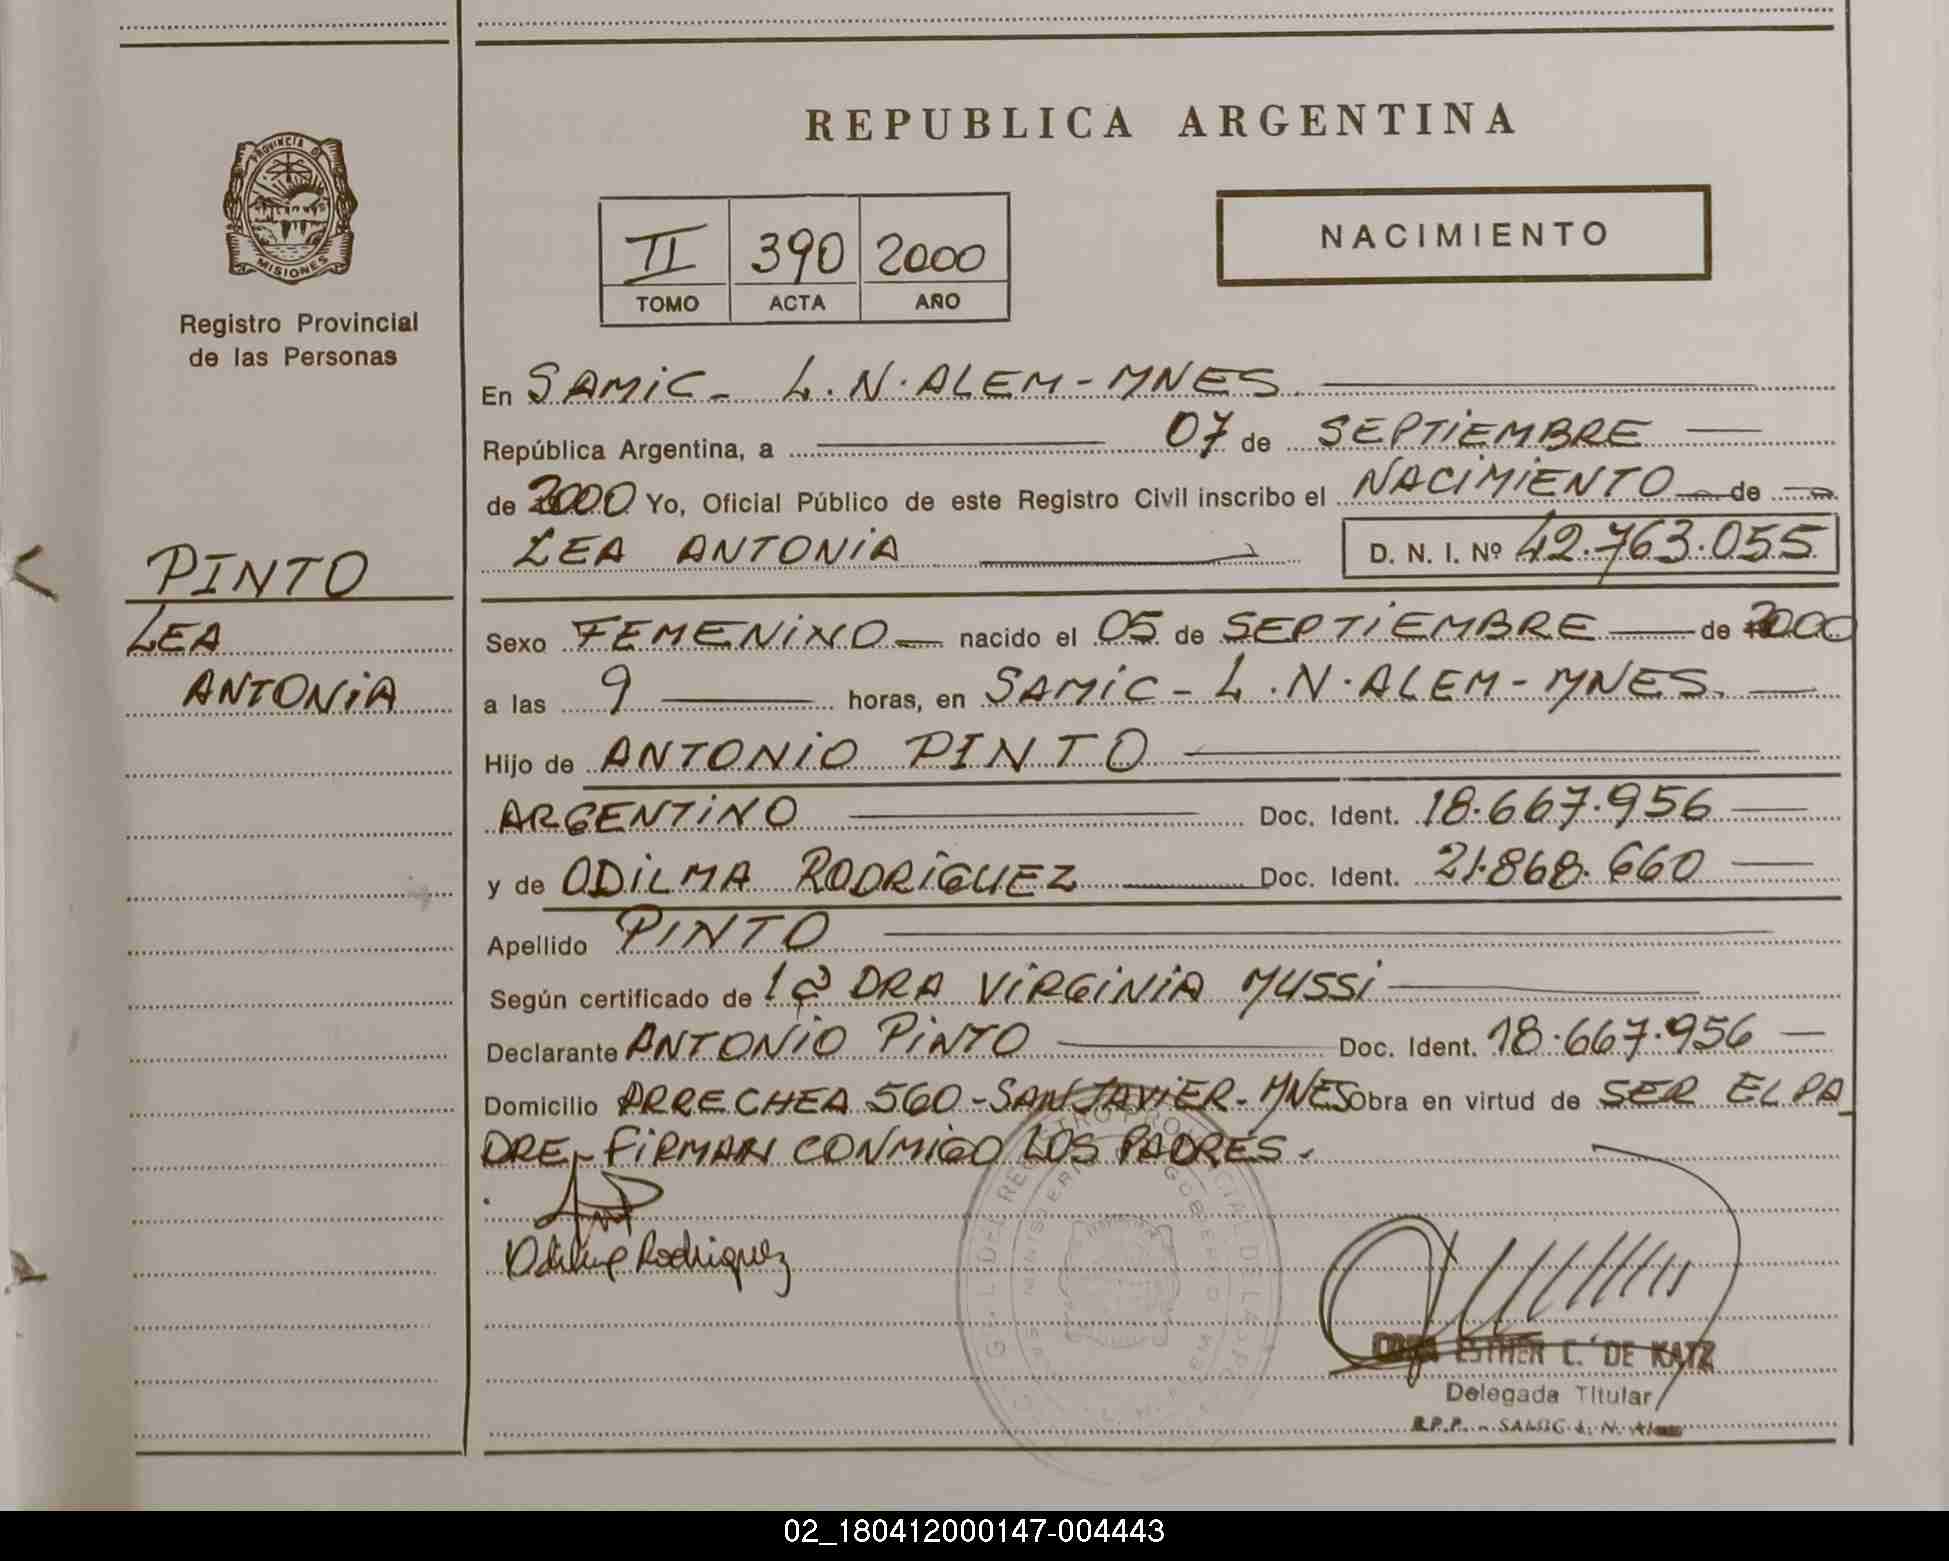 REPUBLICA ARGENTINA
PROVINCIA DE
MISIONES
Registro Provincial
de las Personas
II 390 2000
TOMO ACTA AÑO
NACIMIENTO
En SAMiC - L.N. ALEM - MNES.
República Argentina, a 07 de SEPTiEMBRE
de 2000 Yo, Oficial Público de este Registro Civil inscribo el NACIMIENTO de
LEA ANTONiA D. N. I. Nº 42.763.055
PINTO
LEA
ANTONiA
Sexo FEMENiNO nacido el 05 de SEPTiEMBRE de 2000
a las 9 horas, en SAMiC - L.N. ALEM - MNES.
Hijo de ANTONiO PINTO
ARGENTiNO Doc. Ident. 18.667.956
y de ODiLMA RODRíGUEZ Doc. Ident. 21.868.660
Apellido PINTO
Según certificado de la DRA ViRGiNiA MUSSi
Declarante ANTONiO PiNTO Doc. Ident. 18.667.956
Domicilio ARRECHEA 560 - SAN JAViER - MNES Obra en virtud de SER EL PA_
DRE - FiRMAN CONMiGO LOS PADRES.
Odilma Rodriguez
ESTHER C. DE KATZ
Delegada Titular
R.P.P. - SAMIC L. N. Alem
02_180412000147-004443